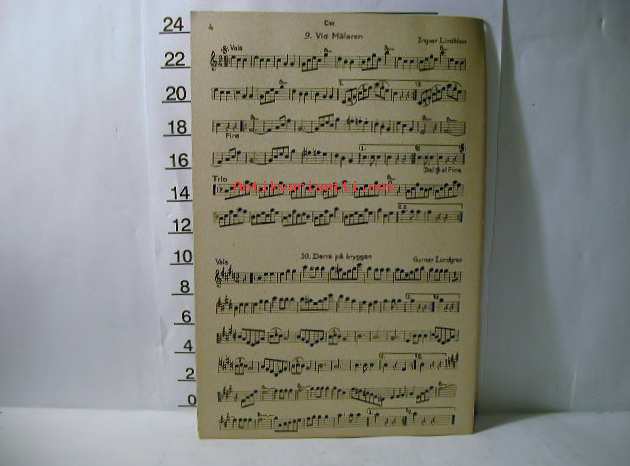 24
22
20
18
16
14
12
10
8
6
4
2
0
4
9. Vid Mälaren
Vals
Ingvar Lindblom
1.
2.
Fine
1.
2.
Dal 𝄋 al Fine
Trio
10. Dans på bryggan
Vals
Gunnar Lundgren
1.
2.
1.
2.
1.
2.